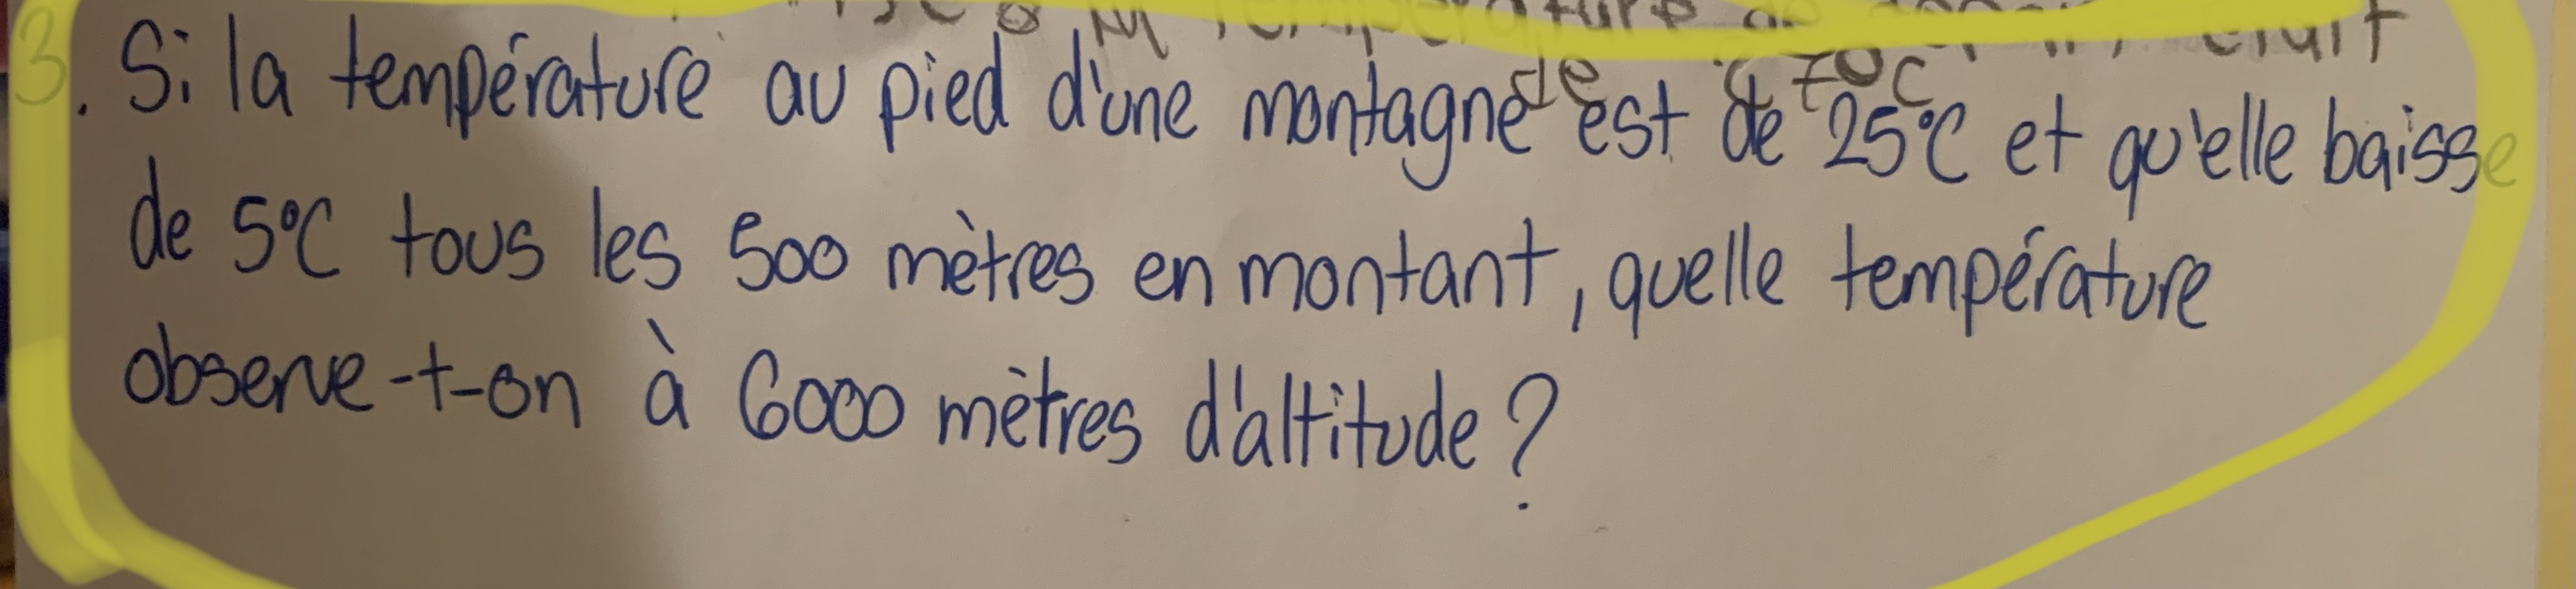 3. Si la température au pied d'une montagne est de 25°C et qu'elle baisse
de 5°C tous les 500 mètres en montant, quelle température
observe-t-on à 6000 mètres d'altitude?